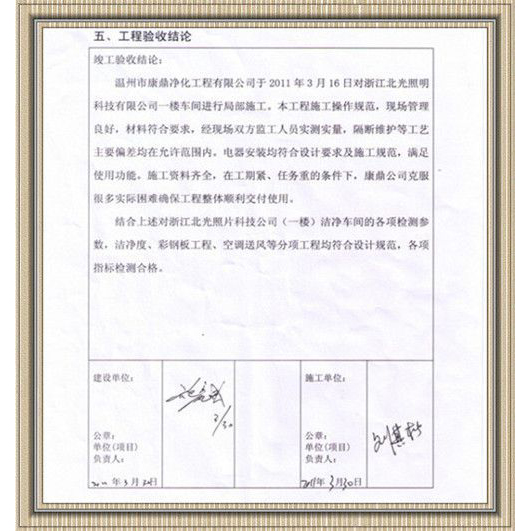 五、工程验收结论
竣工验收结论:
温州市康鼎净化工程有限公司于 2011 年 3 月 16 日对浙江北光照明
科技有限公司一楼车间进行局部施工。本工程施工操作规范,现场管理
良好,材料符合要求,经现场双方监工人员实测实量,隔断维护等工艺
主要偏差均在允许范围内。电器安装均符合设计要求及施工规范,满足
使用功能。施工资料齐全,在工期紧、任务重的条件下,康鼎公司克服
很多实际困难确保工程整体顺利交付使用。
结合上述对浙江北光照片科技公司(一楼)洁净车间的各项检测参
数,洁净度、彩钢板工程、空调送风等分项工程均符合设计规范,各项
指标检测合格。
建设单位:
3/30
公章:
单位(项目)
负责人:
2011 年 3 月 30日
施工单位:
公章:
单位(项目)
负责人:
2011年 3月30日